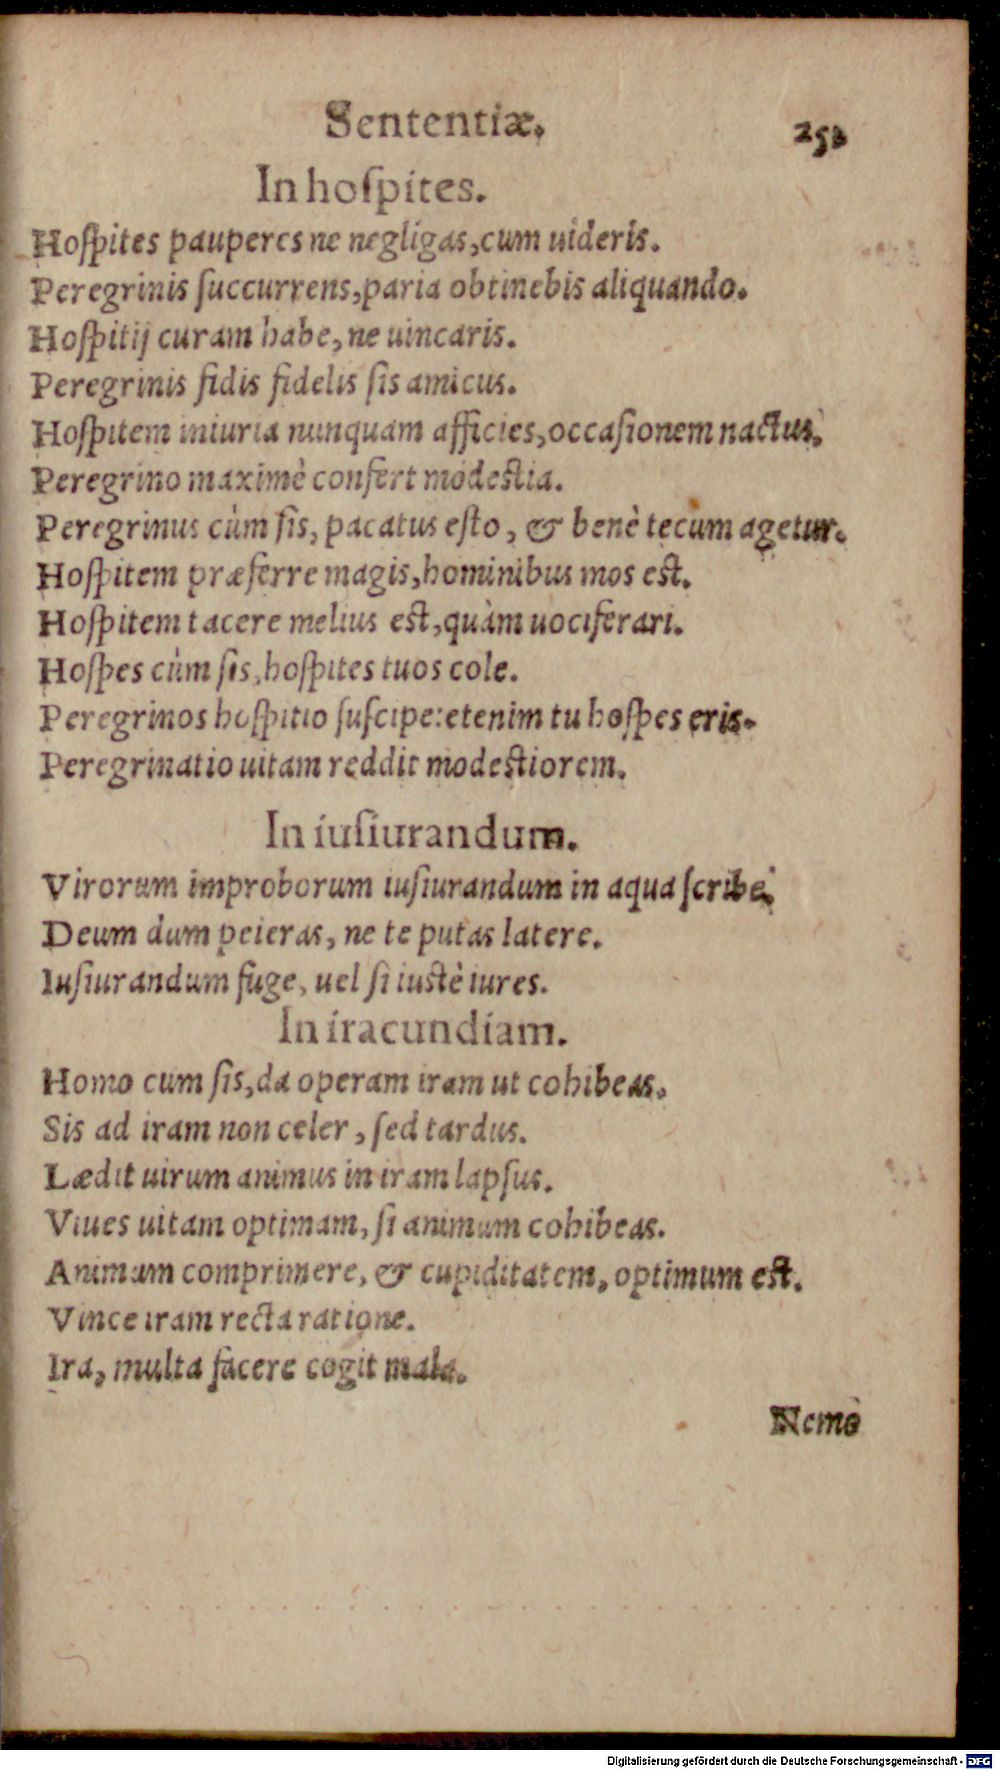 Sententiæ.
252
In hoſpites.
Hoſpites pauperes ne negligas,cum uideris.
Peregrinis ſuccurrens,paria obtinebis aliquando.
Hoſpitij curam habe, ne uincaris.
Peregrinis fidis fidelis ſis amicus.
Hoſpitem iniuria nunquam afficies,occaſionem nactus.
Peregrino maximè confert modeſtia.
Peregrinus cùm ſis, pacatus eſto, & benè tecum agetur.
Hoſpitem præferre magis,hominibus mos eſt.
Hoſpitem tacere melius eſt,quàm uociferari.
Hoſpes cùm ſis,hoſpites tuos cole.
Peregrinos hoſpitio ſuſcipe:etenim tu hoſpes eris.
Peregrinatio uitam reddit modeſtiorem.
In iuſiurandum.
Virorum improborum iuſiurandum in aqua ſcribe.
Deum dum peieras, ne te putas latere.
Iuſiurandum fuge, uel ſi iuſtè iures.
In iracundiam.
Homo cum ſis,da operam iram ut cohibeas.
Sis ad iram non celer, ſed tardus.
Lædit uirum animus in iram lapſus.
Viues uitam optimam, ſi animum cohibeas.
Animum comprimere, & cupiditatem, optimum eſt.
Vince iram recta ratione.
Ira, multa facere cogit mala.
Nemo
Digitalisierung gefördert durch die Deutsche Forschungsgemeinschaft - DFG